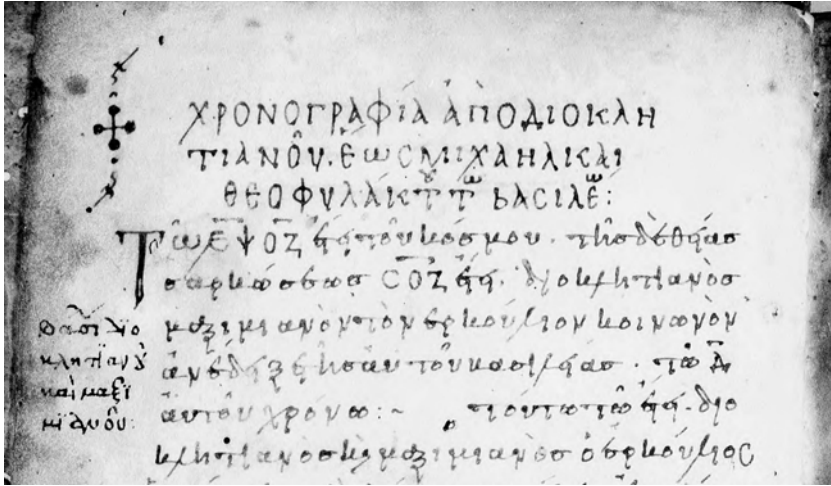 ΧΡΟΝΟΓΡΑΦΊΑ ἈΠΟ ΔΙΟΚΛΗ
ΤΙΑΝΟῦ. ἝΩC ΜΙΧΑῊΛ ΚΑΙ
ΘΕΟΦΥΛΆΚΤȢ Τῶ ΒΑCΙΛΕῶ:
Τῶ ΕΨΟΖ ἔτει τοῦ κόσμου. τῆς δὲ θείας
σαρκώσεως CΟΖ ἔτει. διοκλητιανὸς
μαξιμιανὸν τὸν ἑρκούλιον κοινωνὸν
ἀνέδειξε τῆς αὐτοῦ βασιλείας. τῶ Δ
αὐτοῦ χρόνω:~ τούτω τῶ ἔτει. διο
κλητιανὸς κὶ μαξιμιανὸς ὁ ἑρκούλιος
βασι διο
κλητϊανȣ
καὶ μαξϊ
μϊανοῦ: